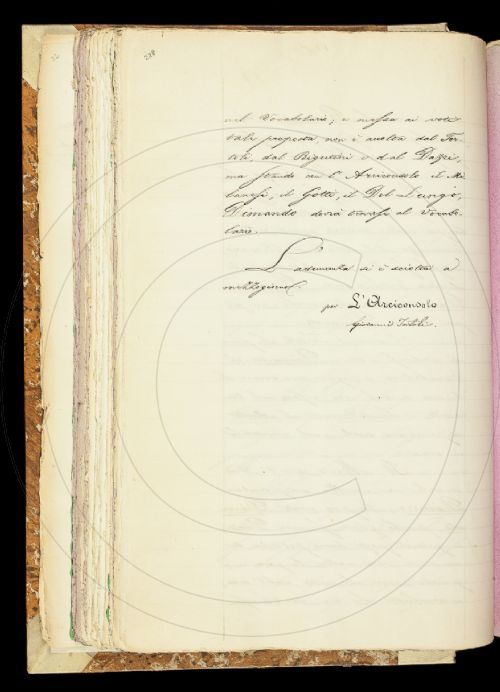 238
nel Vocabolario; e messa ai voti
tale proposta, non è accolta dal Tor-
toli, dal Rigutini e dal Dazzi,
ma stando con l'Arciconsolo il Mi-
lanesi, il Gotti, il Del Lungo,
Dimando dovrà trovarsi al Vocabo-
lario.
L'adunanza si è sciolta a
mezzogiorno.
per L'Arciconsolo
Giovanni Tortoli.